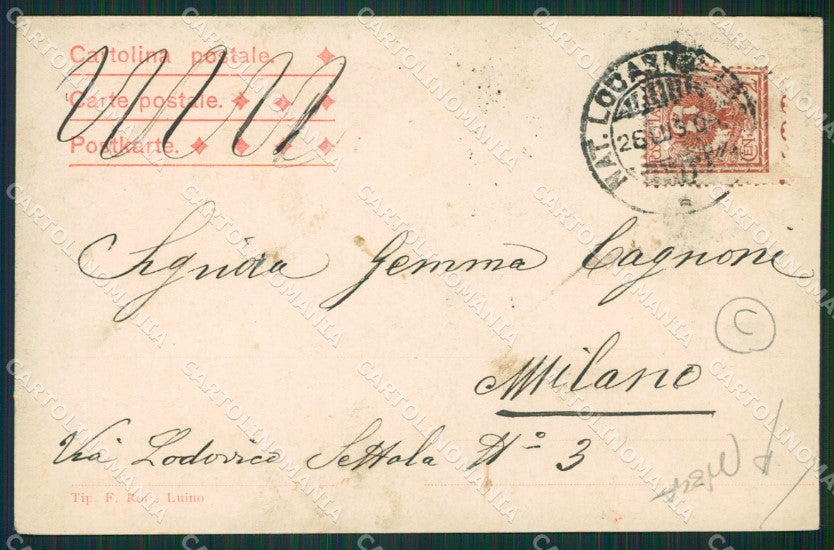 Cartolina postale.
Carte postale.
Postkarte.
NAT. LOCARNO
26
CEN
Signora Gemma Cagnoni
C
Milano
Via Lodovico Settala No 3
Tip. F. Luino
CARTOLINOMANIA